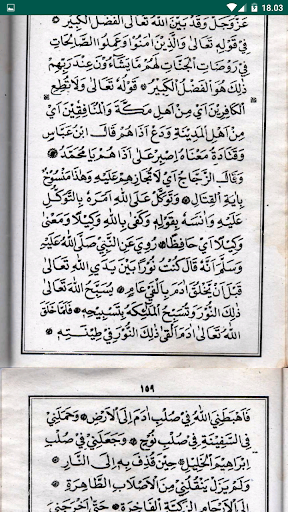 18.03
عَزَّوَجَلَّ وَقَدْ بَيَّنَ اللهُ تَعَالَى الْفَضْلَ الْكَبِيْرَ
فِي قَوْلِهِ تَعَالَى وَالَّذِيْنَ اٰمَنُوْا وَعَمِلُوا الصَّالِحَاتِ
فِي رَوْضَاتِ الْجَنَّاتِ لَهُمْ مَا يَشَاؤُنَ عِنْدَ رَبِّهِمْ
ذٰلِكَ هُوَ الْفَضْلُ الْكَبِيْرُ وَقَوْلُهُ تَعَالَى وَلَا تُطِعِ
الْكَافِرِيْنَ اَيْ مِنْ اَهْلِ مَكَّةَ وَالْمُنَافِقِيْنَ اَيْ
مِنْ اَهْلِ الْمَدِيْنَةِ وَدَعْ اَذَاهُمْ قَالَ ابْنُ عَبَّاسٍ
وَقَتَادَةُ مَعْنَاهُ اِصْبِرْ عَلَى اَذَاهُمْ يَا مُحَمَّدُ
وَقَالَ الزَّجَّاجُ اَيْ لَا تُجَازِهِمْ عَلَيْهِ وَهٰذَا مَنْسُوْخٌ
بِاٰيَةِ الْقِتَالِ وَتَوَكَّلْ عَلَى اللهِ اَمَرَهُ بِالتَّوَكُّلِ
عَلَيْهِ وَاٰنَسَهُ بِقَوْلِهِ وَكَفَى بِاللهِ وَكِيْلًا وَمَعْنَى
وَكِيْلًا اَيْ حَافِظًا رُوِيَ عَنِ النَّبِيِّ صَلَّى اللهُ عَلَيْهِ
وَسَلَّمَ اَنَّهُ قَالَ كُنْتُ نُوْرًا بَيْنَ يَدَيِ اللهِ تَعَالَى
قَبْلَ اَنْ يَخْلُقَ اٰدَمَ بِاَلْفَيْ عَامٍ يُسَبِّحُ اللهَ تَعَالَى
ذٰلِكَ النُّوْرُ وَتُسَبِّحُ الْمَلٰئِكَةُ بِتَسْبِيْحِهِ فَلَمَّا خَلَقَ
اللهُ تَعَالَى اٰدَمَ اَلْقَى ذٰلِكَ النُّوْرَ فِي طِيْنَتِهِ
١٥٩
فَاَهْبَطَنِيَ اللهُ فِي صُلْبِ اٰدَمَ اِلَى الْاَرْضِ وَحَمَلَنِي
فِي السَّفِيْنَةِ فِي صُلْبِ نُوْحٍ وَجَعَلَنِي فِي صُلْبِ
اِبْرَاهِيْمَ الْخَلِيْلِ حِيْنَ قُذِفَ بِهِ اِلَى النَّارِ
وَلَمْ يَزَلْ يَنْقُلُنِي مِنَ الْاَصْلَابِ الطَّاهِرَةِ
اِلَى الْاَرْحَامِ الزَّكِيَّةِ الْفَاخِرَةِ حَتَّى اَخْرَجَنِي